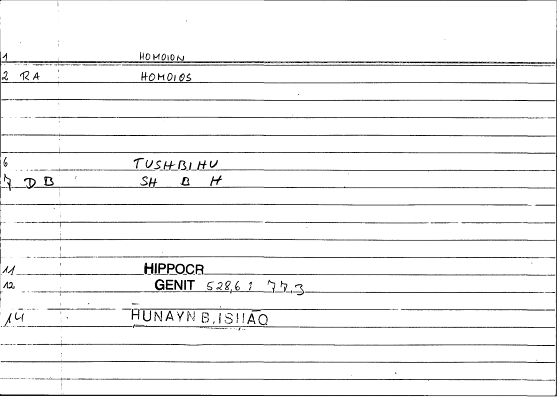 1 HOMOION
2 RA HOMOIOS
6 TUSHBIHU
7 DB SH B H
11 HIPPOCR
12 GENIT 528,6 1 77,3
14 HUNAYN B. ISHAQ